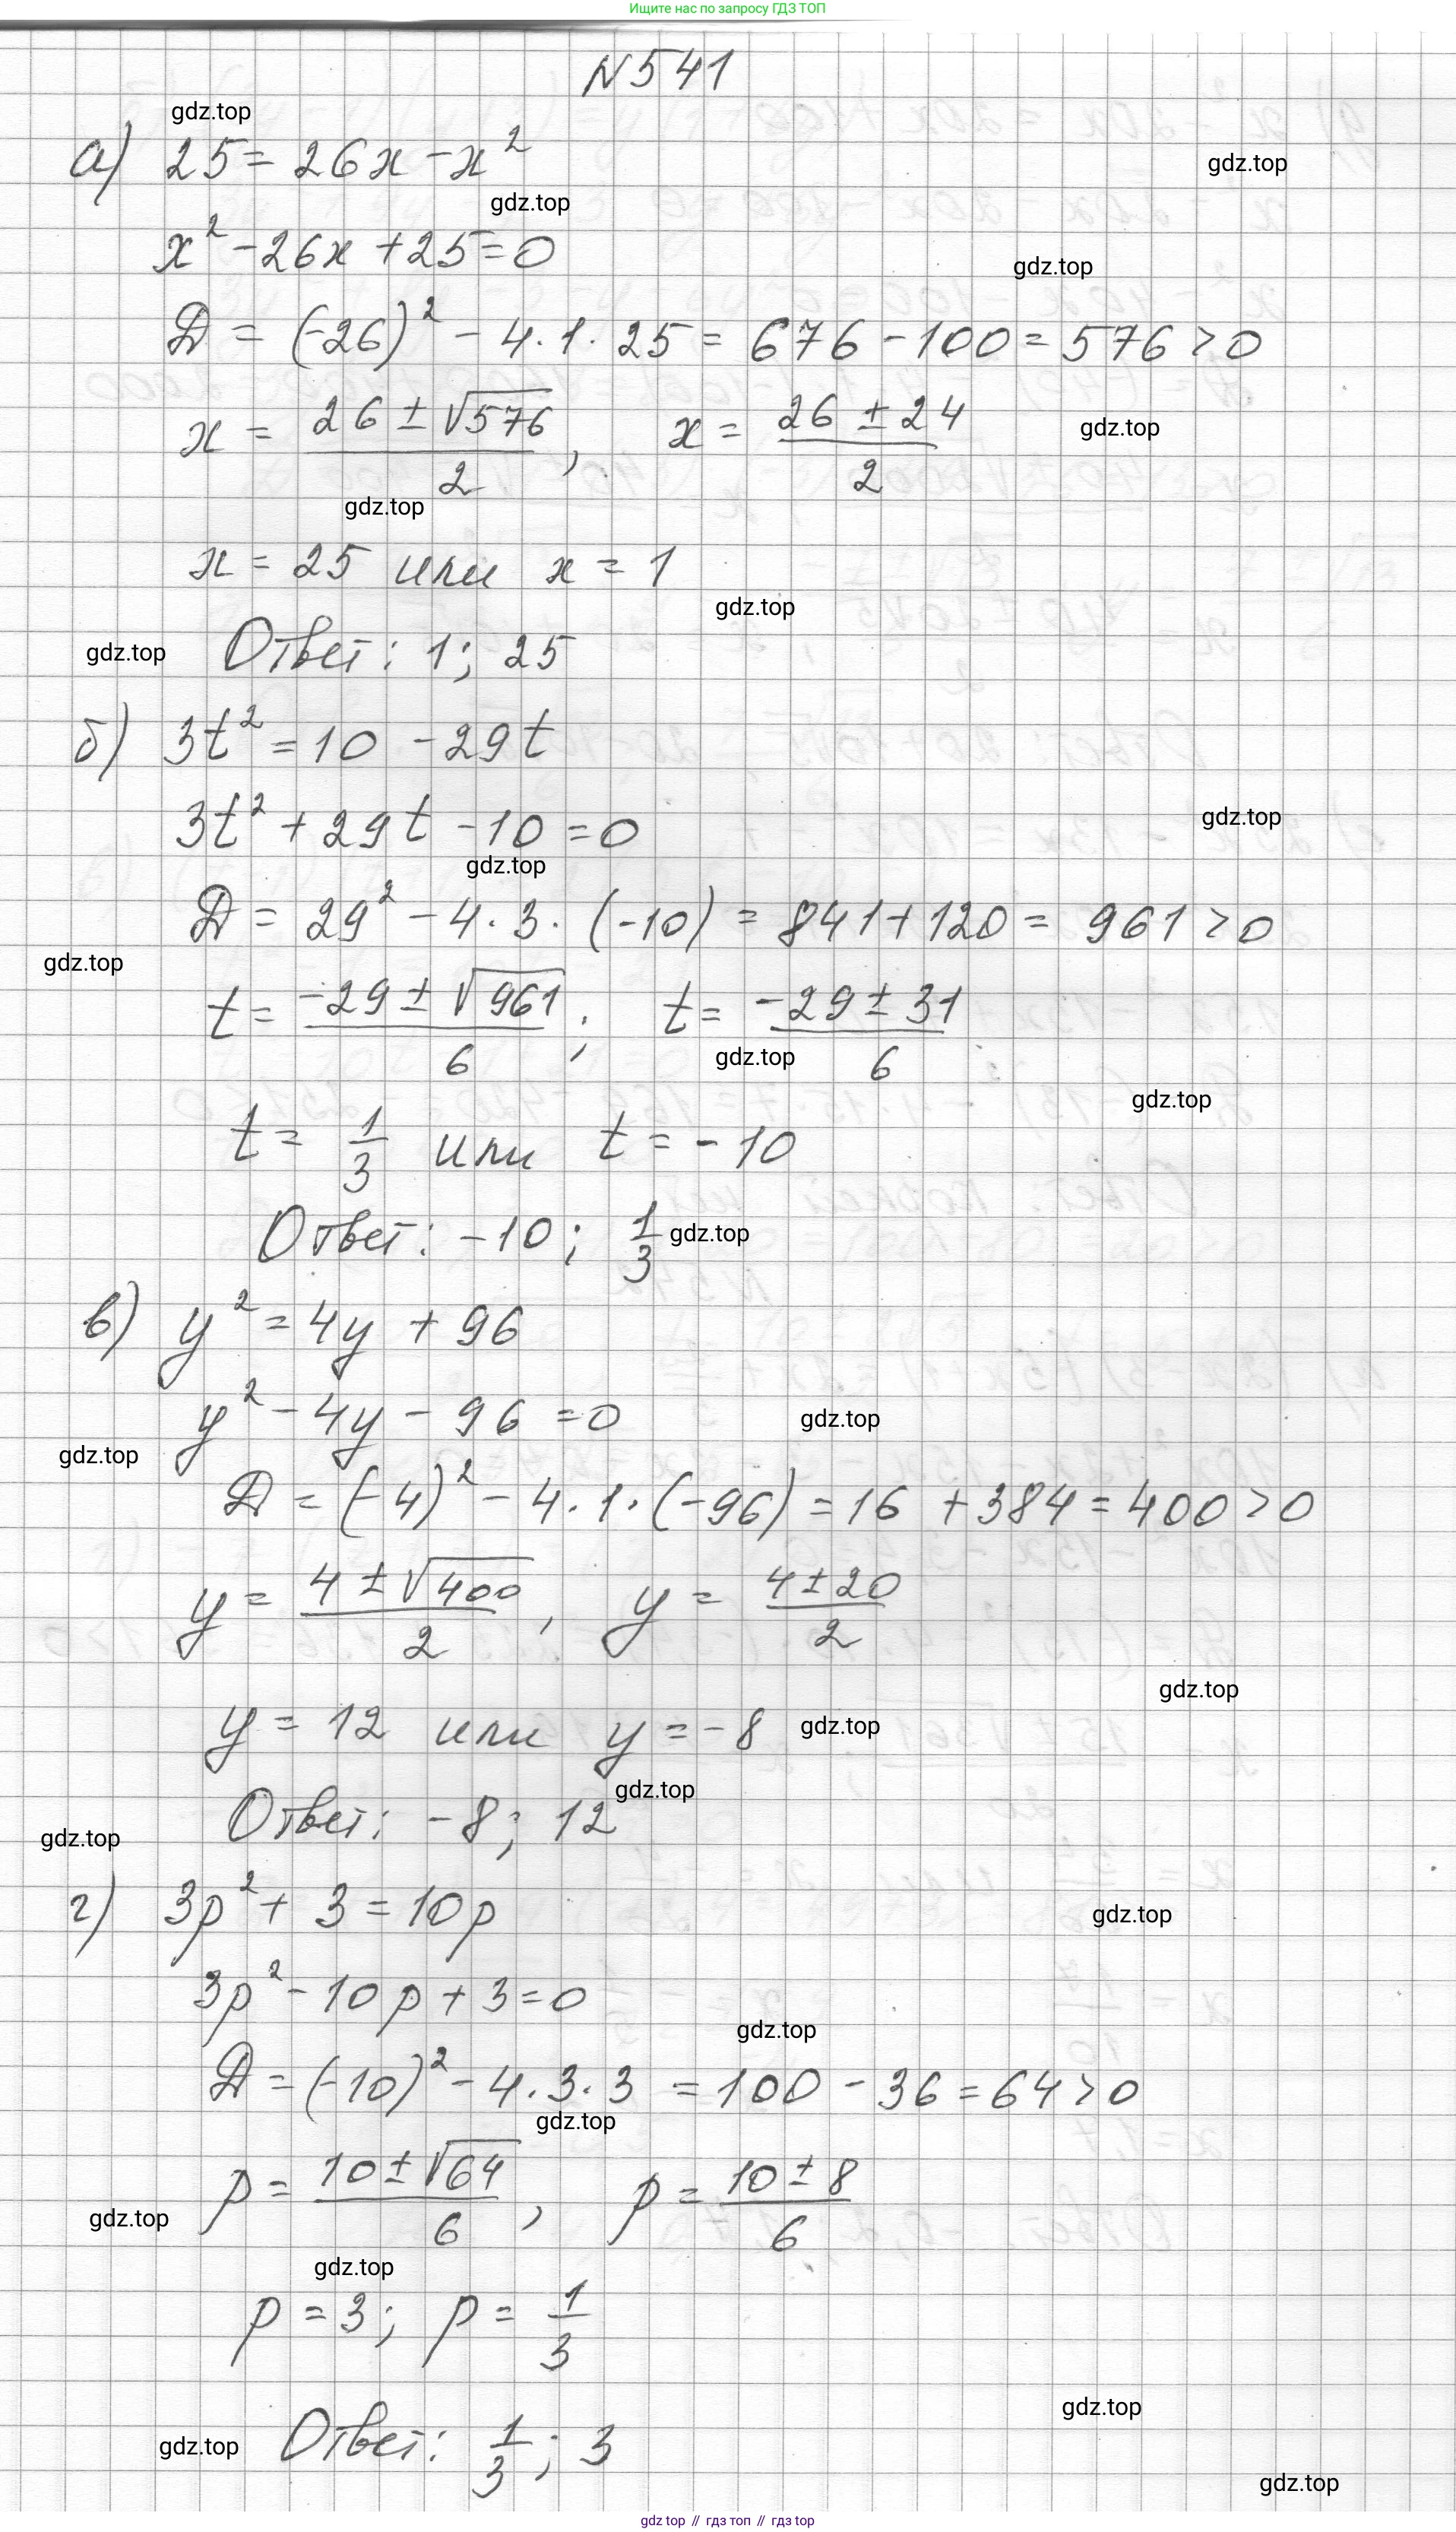 Ищите нас по запросу ГДЗ ТОП
N541
gdz.top
а) 25 = 26x - x²
gdz.top
gdz.top
x² - 26x + 25 = 0
gdz.top
D = (-26)² - 4·1·25 = 676 - 100 = 576 > 0
x = (26 ± √576)/2, x = (26 ± 24)/2
gdz.top
gdz.top
x = 25 или x = 1
gdz.top
gdz.top
Ответ: 1; 25
б) 3t² = 10 - 29t
3t² + 29t - 10 = 0
gdz.top
gdz.top
D = 29² - 4·3·(-10) = 841 + 120 = 961 > 0
gdz.top
t = (-29 ± √961)/6; t = (-29 ± 31)/6
gdz.top
gdz.top
t = 1/3 или t = -10
Ответ: -10; 1/3
gdz.top
в) y² = 4y + 96
y² - 4y - 96 = 0
gdz.top
gdz.top
D = (-4)² - 4·1·(-96) = 16 + 384 = 400 > 0
y = (4 ± √400)/2, y = (4 ± 20)/2
gdz.top
y = 12 или y = -8
gdz.top
gdz.top
Ответ: -8; 12
gdz.top
г) 3p² + 3 = 10p
gdz.top
3p² - 10p + 3 = 0
gdz.top
D = (-10)² - 4·3·3 = 100 - 36 = 64 > 0
gdz.top
p = (10 ± √64)/6, p = (10 ± 8)/6
gdz.top
gdz.top
p = 3; p = 1/3
gdz.top
Ответ: 1/3; 3
gdz.top
gdz.top
gdz top // гдз топ // гдз top